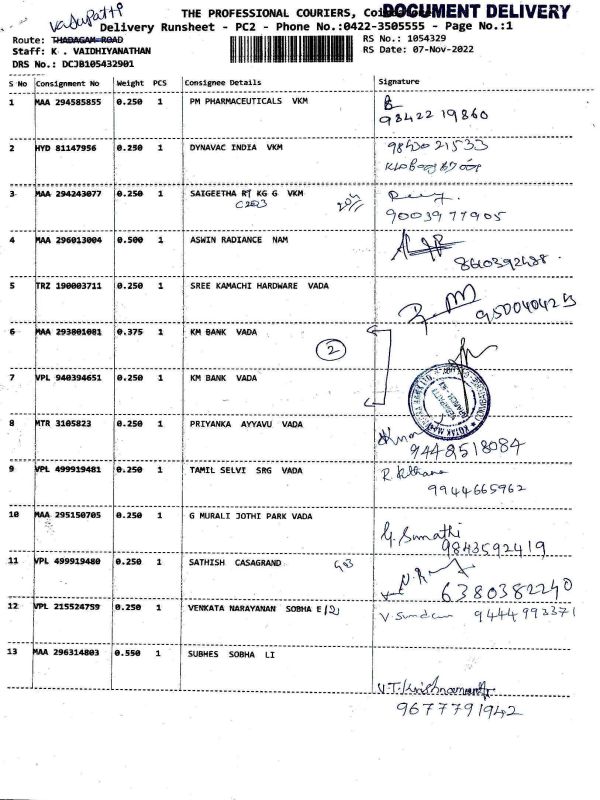 vadapatti
THE PROFESSIONAL COURIERS, Coimbatore
DOCUMENT DELIVERY
Delivery Runsheet - PC2 - Phone No.:0422-3505555 - Page No.:1
Route: THADAGAM ROAD RS No.: 1054329
Staff: K . VAIDHIYANATHAN RS Date: 07-Nov-2022
DRS No.: DCJB105432901
S No Consignment No Weight PCS Consignee Details Signature
1 MAA 294585855 0.250 1 PM PHARMACEUTICALS VKM
98422 19860
2 HYD 81147956 0.250 1 DYNAVAC INDIA VKM 98430 21533
3 MAA 294243077 0.250 1 SAIGEETHA RT KG G VKM
9003977905
4 MAA 296013004 0.500 1 ASWIN RADIANCE NAM
8610392488
5 TRZ 190003711 0.250 1 SREE KAMACHI HARDWARE VADA
6 MAA 293801081 0.375 1 KM BANK VADA
2
7 VPL 940394651 0.250 1 KM BANK VADA
8 MTR 3105823 0.250 1 PRIYANKA AYYAVU VADA
9442518084
9 VPL 499919481 0.250 1 TAMIL SELVI SRG VADA
9944665962
10 MAA 295150705 0.250 1 G MURALI JOTHI PARK VADA
G. Sumathi
9843592419
11 VPL 499919480 0.250 1 SATHISH CASAGRAND
6380382240
12 VPL 215524759 0.250 1 VENKATA NARAYANAN SOBHA E 121 V Sundar 9444992371
13 MAA 296314803 0.550 1 SUBHES SOBHA LI
V.T. Krishnamurthy
9677791942